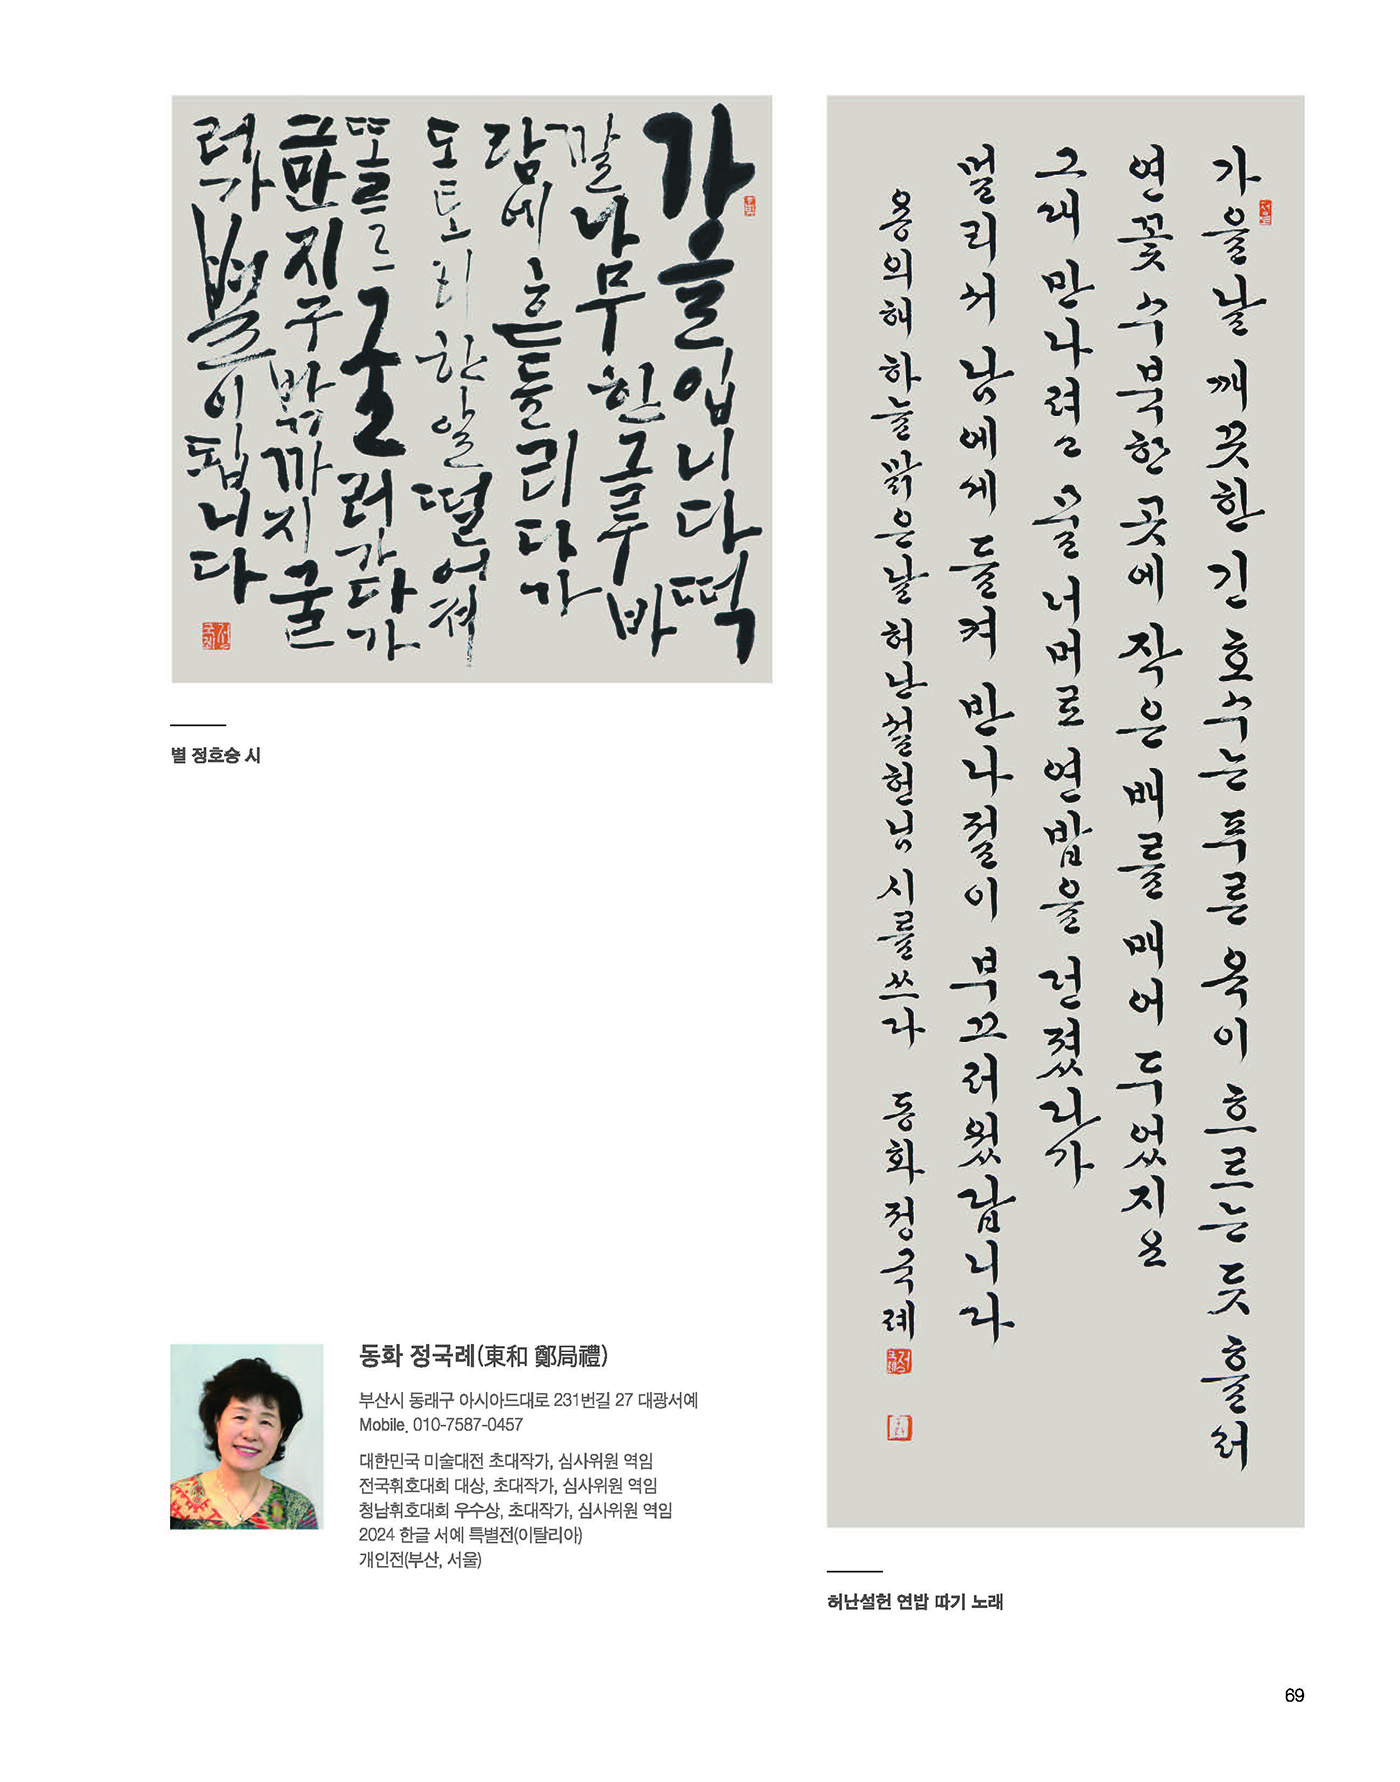 가을입니다떡
깔나무한그루바
람에흔들리다가
도토리한알떨어져
또르르굴러가다가
그만지구밖까지굴
러가별이됩니다
별 정호승 시
가을날 깨끗한 긴 호수는 푸른 옥이 흐르는 듯 흘러
연꽃 수북한 곳에 작은 배를 매어 두었지요
그대 만나려고 물 너머로 연밥을 던졌다가
멀리서 남에게 들켜 반나절이 부끄러웠답니다
용의해 하늘 맑은날 허난설헌님 시를 쓰다 동화 정국례
허난설헌 연밥 따기 노래
동화 정국례(東和 鄭局禮)
부산시 동래구 아시아드대로 231번길 27 대광서예
Mobile. 010-7587-0457
대한민국 미술대전 초대작가, 심사위원 역임
전국휘호대회 대상, 초대작가, 심사위원 역임
청남휘호대회 우수상, 초대작가, 심사위원 역임
2024 한글 서예 특별전(이탈리아)
개인전(부산, 서울)
69